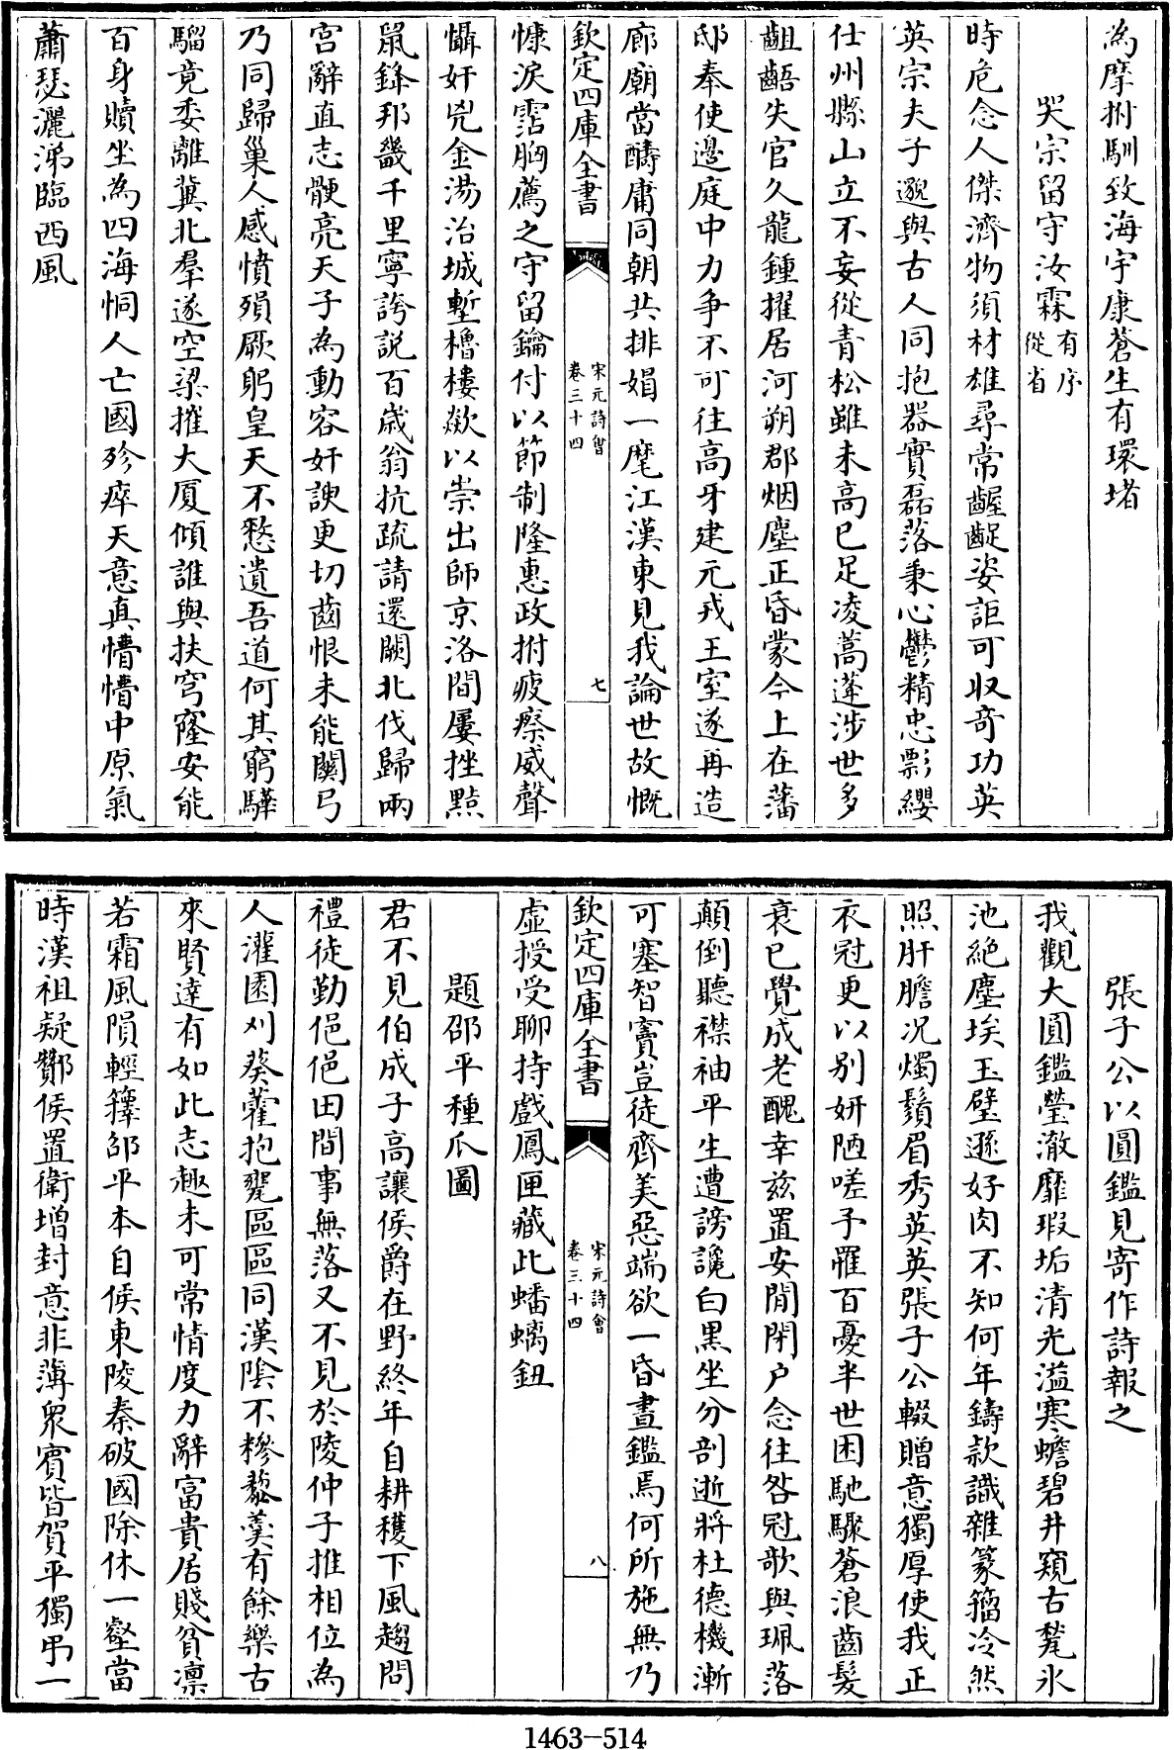 為摩拊馴致海宇康蒼生有環堵
哭宗留守汝霖有序從省
時危念人傑濟物須材雄尋常齷齪姿詎可収竒功英
英宗夫子邈與古人同抱器實磊落秉心鬱精忠影纓
仕州縣山立不妄從青松雖未高已足凌蒿蓬涉世多
齟齬失官久龍鍾擢居河朔郡烟塵正昏蒙今上在藩
邸奉使邉庭中力争不可往高牙建元戎王室遂再造
廊廟當疇庸同朝共排娼一麾江漢東見我論世故慨
慷淚霑胸薦之守留鑰付以節制隆惠政拊疲瘵威聲
懾奸兇金湯治城塹櫓樓欻以崇出師京洛間屢挫黠
䑕鋒邦畿千里寧誇説百歲翁抗疏請還闕北伐歸兩
宫辭直志骾亮天子為動容奸諛更切齒恨未能關弓
乃同歸巢人感憤殞厥躬皇天不憖遺吾道何其窮驊
騮竟委離冀北羣遂空梁摧大厦傾誰與扶穹窿安能
百身贖坐為四海恫人亡國殄瘁天意真懵懵中原氣
蕭瑟灑涕臨西風
欽定四庫全書
宋元詩會
卷三十四
七
張子公以圓鑑見寄作詩報之
我觀大圓鑑瑩澈靡瑕垢清光溢寒蟾碧井窺古甃氷
池絶塵埃玉璧遜好肉不知何年鑄款識雜篆籀冷然
照肝膽况燭鬚眉秀英英張子公輟贈意獨厚使我正
衣冠更以别妍陋嗟予罹百憂半世困馳驟蒼浪齒髪
衰已覺成老醜幸兹置安閒閉户念往咎冠欹與珮落
顛倒聽襟袖平生遭謗讒白黒坐分剖逝將杜德機漸
可塞智竇豈徒齊美惡端欲一昏晝鑑焉何所施無乃
虚授受聊持戲鳳匣藏此蟠螭鈕
題邵平種瓜圖
君不見伯成子高讓侯爵在野終年自耕穫下風趨問
禮徒勤俋俋田間事無落又不見於陵仲子推相位為
人灌園刈葵藿抱甕區區同漢陰不糝藜羮有餘樂古
來賢達有如此志趣未可常情度力辭富貴居賤貧凛
若霜風隕輕籜邵平本自侯東陵秦破國除休一壑當
時漢祖疑酇侯置衛增封意非薄衆賓皆賀平獨弔一
欽定四庫全書
宋元詩會
卷三十四
八
1463-514